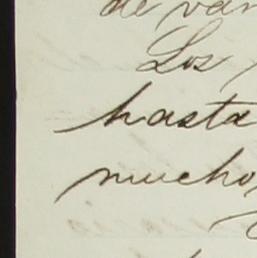 de
Los
hasta
mucho